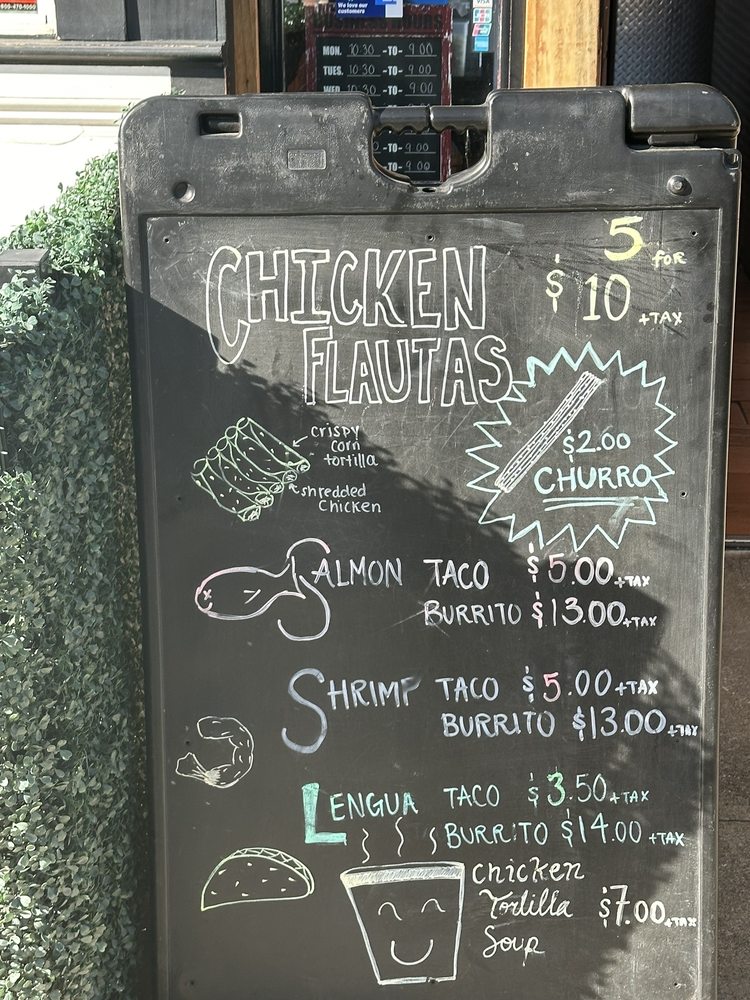 We love our
customers
MON. 10:30 -TO- 9:00
TUES. 10:30 -TO- 9:00
WED. 10:30 -TO- 9:00
-TO- 9:00
-TO- 9:00
CHICKEN
FLAUTAS
5 FOR
$10 +TAX
crispy
corn
tortilla
shredded
chicken
$2.00
CHURRO
SALMON TACO $5.00 +TAX
BURRITO $13.00 +TAX
SHRIMP TACO $5.00 +TAX
BURRITO $13.00 +TAX
LENGUA TACO $3.50 +TAX
BURRITO $14.00 +TAX
chicken
Tortilla $7.00 +TAX
Soup